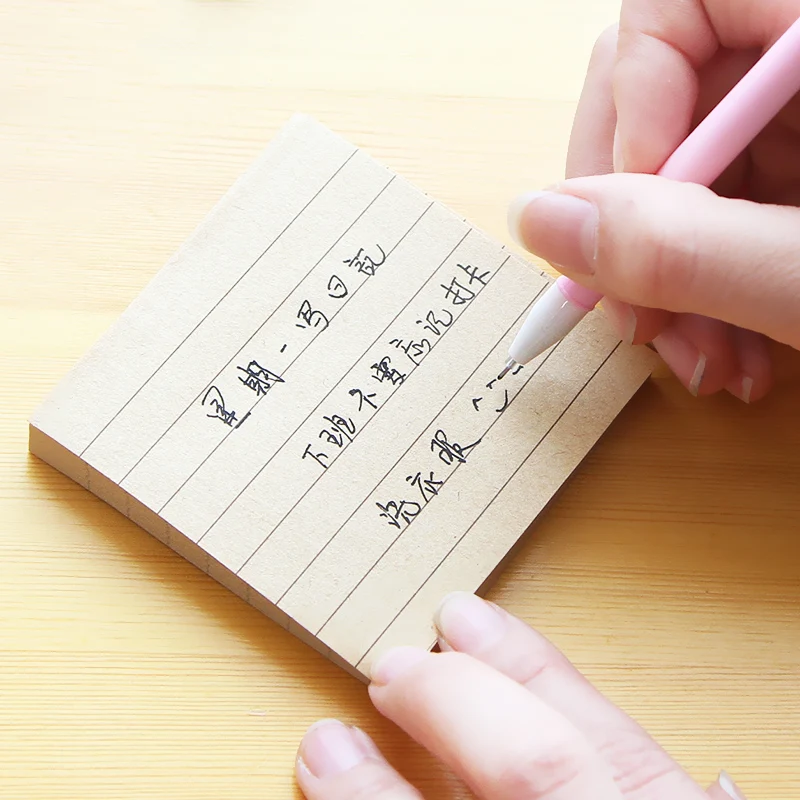 星期一写日记
下班不要忘记打卡
洗衣服